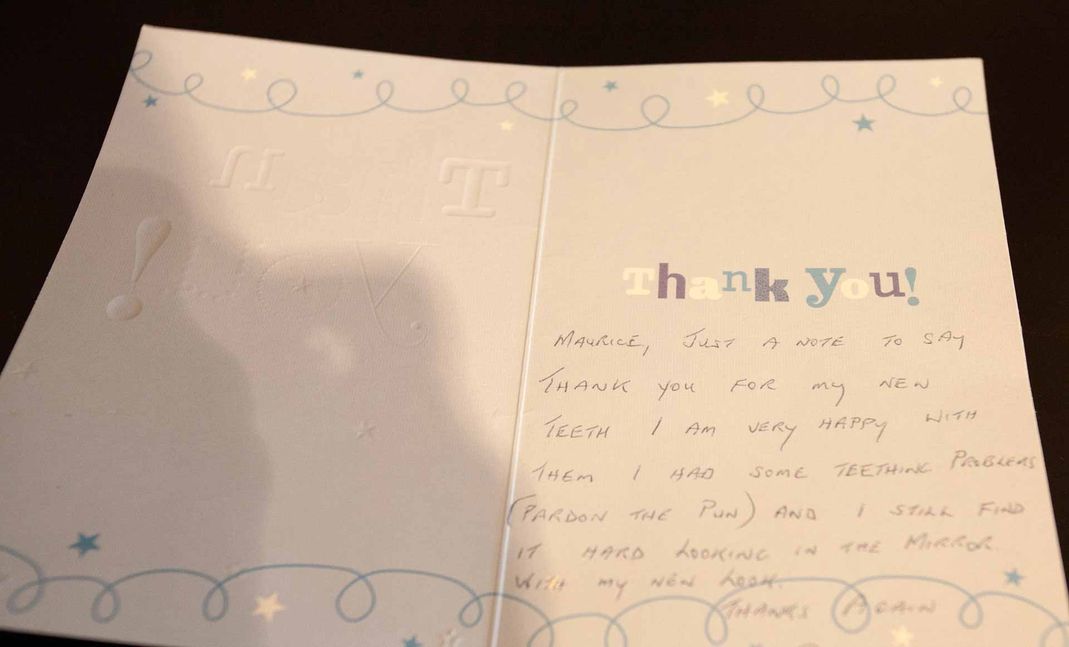 Thank you!
MAURICE, JUST A NOTE TO SAY
THANK YOU FOR MY NEW
TEETH I AM VERY HAPPY WITH
THEM I HAD SOME TEETHING PROBLEMS
(PARDON THE PUN) AND I STILL FIND
IT HARD LOOKING IN THE MIRROR.
WITH MY NEW LOOK.
THANKS AGAIN